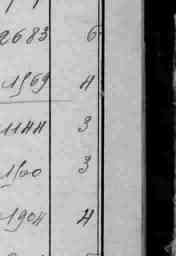 2683 6
1569 4
1144 3
1500 3
1904 4